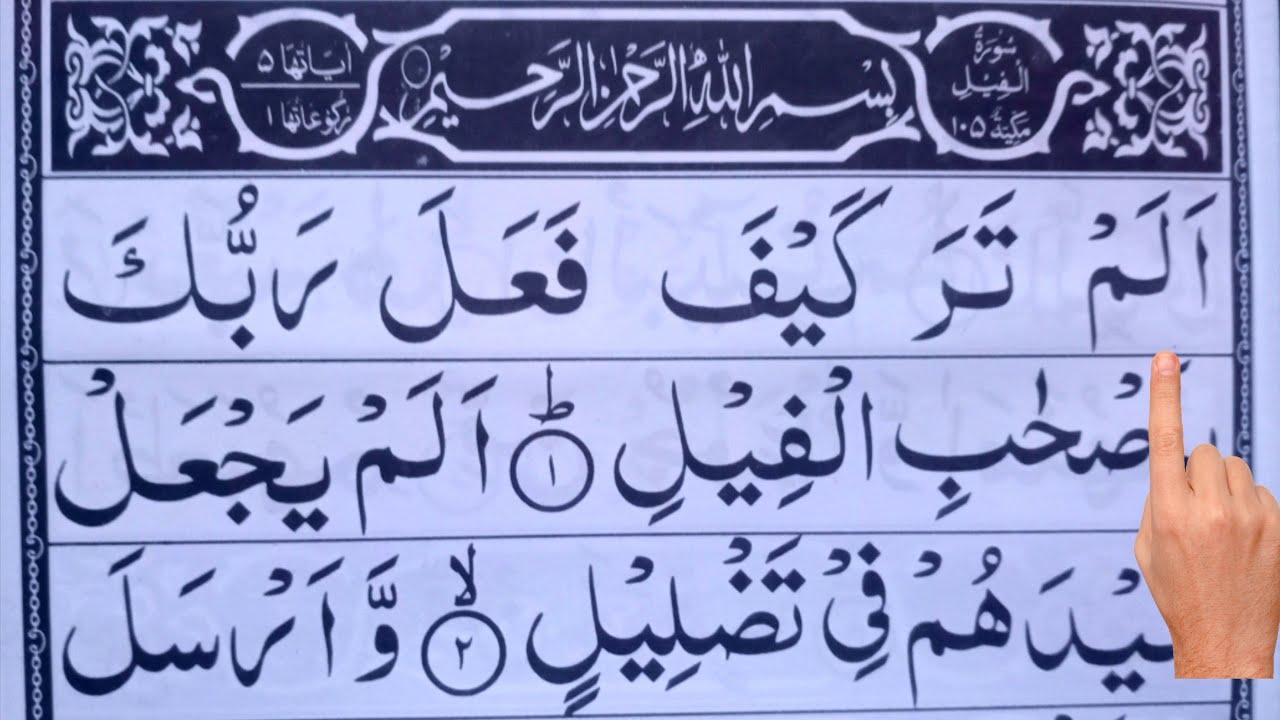 سُورَةُ
الْفِيْلِ
مَكِّيَّةٌ ١٠٥
بِسْمِ اللّٰهِ الرَّحْمٰنِ الرَّحِيْمِ
اٰيَاتُهَا ٥
رُكُوْعَاتُهَا ١
اَلَمْ تَرَ كَيْفَ فَعَلَ رَبُّكَ
صْحٰبِ الْفِيْلِ ؕ ١ اَلَمْ يَجْعَلْ
يْدَهُمْ فِيْ تَضْلِيْلٍ ۙ ٢ وَّاَرْسَلَ